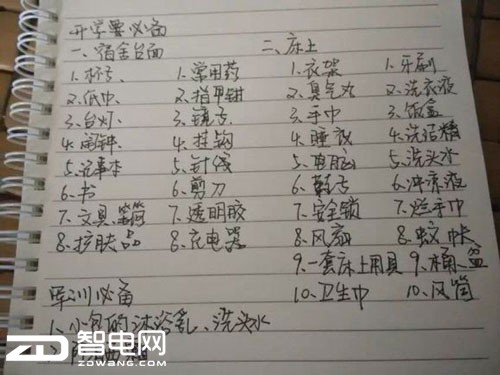 开学要必备
一、宿舍台面 二、床上
1.杯子 1.常用药 1.衣架 1.牙刷
2.纸巾 2.指甲钳 2.臭气丸 2.洗衣液
3.台灯 3.镜子 3.手巾 3.饭盒
4.闹钟 4.挂钩 4.睡衣 4.洗洁精
5.记事本 5.针线 5.电脑 5.洗头水
6.书 6.剪刀 6.鞋子 6.沐浴液
7.文具 7.透明胶 7.安全锁 7.烂手巾
8.护肤品 8.充电器 8.风扇 8.蚊帐
9.一套床上用具 9.桶、盆
军训必备 10.卫生巾 10.风筒
1、小包的沐浴乳、洗头水
智电网
ZDWANG.COM